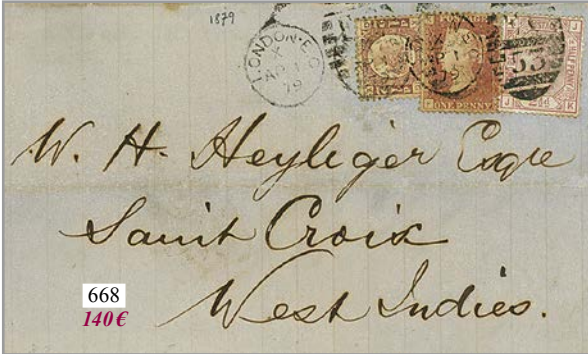 1879
LONDON·E.C
X
AP 1
79
ONE PENNY
53
J K
W. H. Heyliger Esqre
Saint Croix
West Indies.
668
140€